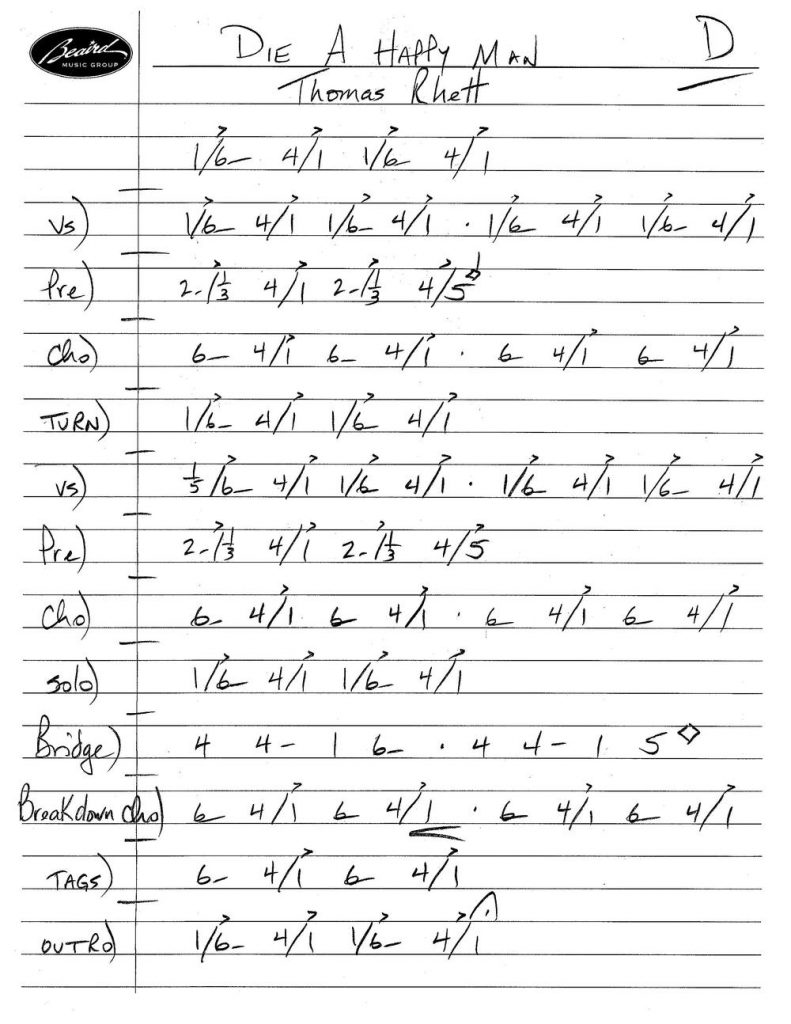 Beaird
MUSIC GROUP
DIE A HAPPY MAN D
Thomas Rhett
1/6- 4/1 1/6- 4/1
Vs) 1/6- 4/1 1/6- 4/1 . 1/6- 4/1 1/6- 4/1
Pre) 2-/1/3 4/1 2-/1/3 4/5 1
Cho) 6- 4/1 6- 4/1 . 6- 4/1 6- 4/1
TURN) 1/6- 4/1 1/6- 4/1
Vs) 1/5/6- 4/1 1/6- 4/1 . 1/6- 4/1 1/6- 4/1
Pre) 2-/1/3 4/1 2-/1/3 4/5
Cho) 6- 4/1 6- 4/1 . 6- 4/1 6- 4/1
Solo) 1/6- 4/1 1/6- 4/1
Bridge) 4 4- 1 6- . 4 4- 1 5 ◇
Breakdown Cho) 6- 4/1 6- 4/1 . 6- 4/1 6- 4/1
TAGS) 6- 4/1 6- 4/1
OUTRO) 1/6- 4/1 1/6- 4/1